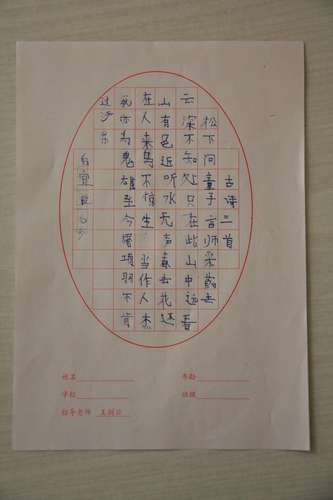 古诗三首
松下问童子言师采药去
云深不知处只在此山中远看
山有色近听水无声春去花还
在人来鸟不惊生当作人杰
死亦为鬼雄至今思项羽不肯
过江东
姓名
年龄
学校
班级
指导老师